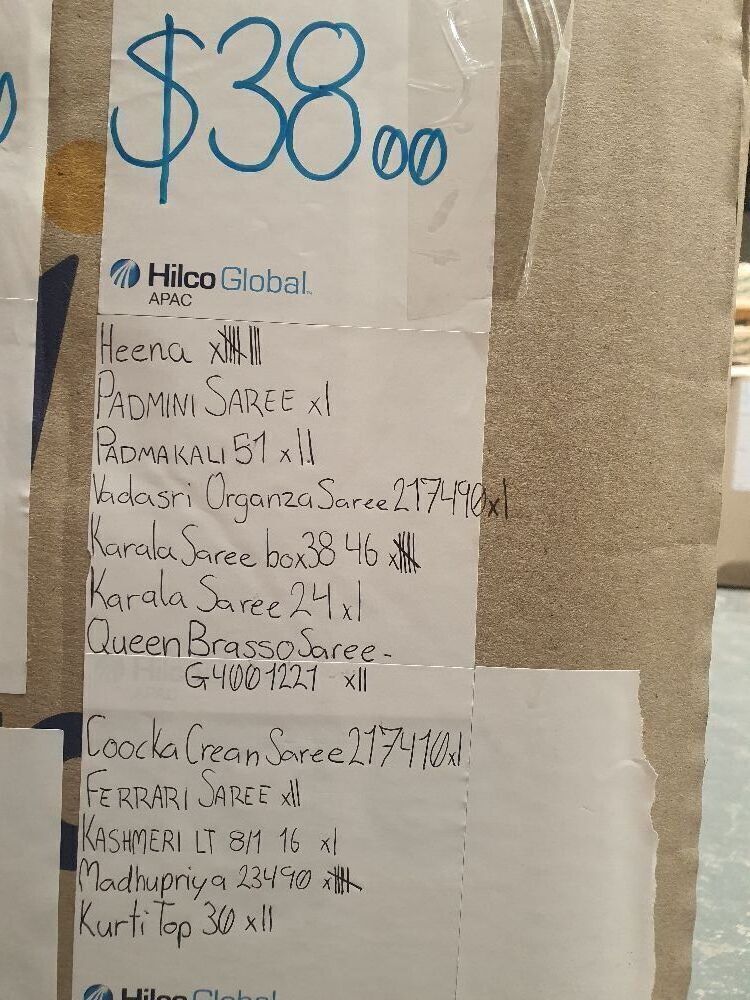 $38.00
Hilco Global
APAC
Heena x𝍸 III
PADMINI SAREE x I
PADMAKALI 51 x II
Vadasri Organza Saree 217490 x I
Karala Saree box 38 46 x𝍸
Karala Saree 24 x I
Queen Brasso Saree -
G4001221 x II
Coocka Crean Saree 217410 x I
FERRARI SAREE x II
KASHMERI LT 8/1 16 x I
Madhupriya 23490 x𝍸
Kurti Top 30 x II
Hilco Global